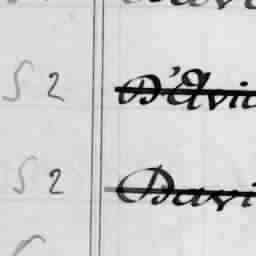 S 2 D'Avi
S 2 Davi